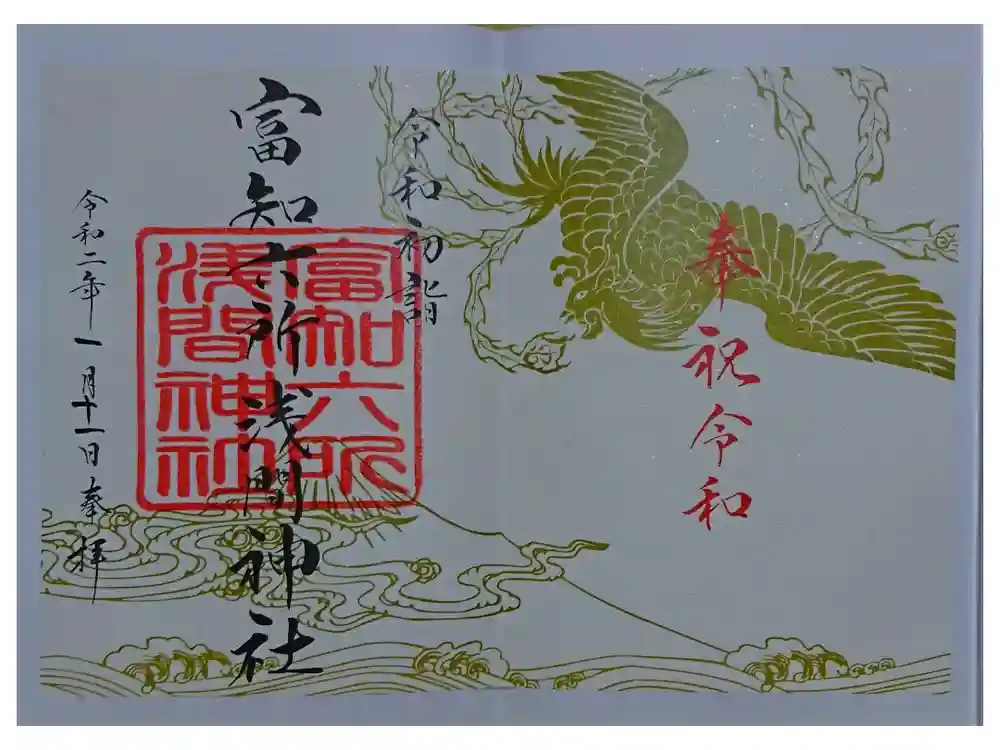 奉祝令和
令和初詣
富知六所浅間神社
富知六所
浅間神社
令和二年一月十一日奉拝